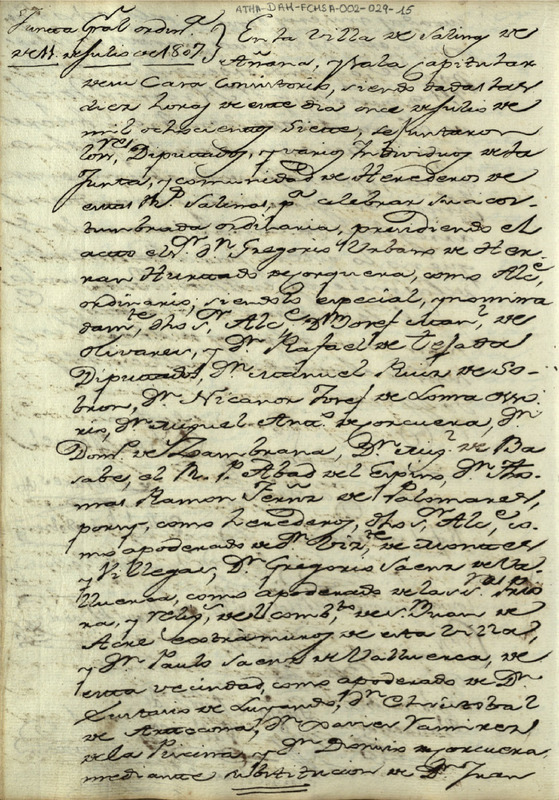 ATHA-DAH-FCMSA-002-029-15
Junta Gral ordin.ª
de 11. de Julio de 1807
En la villa de Salinas de
Añana, y Sala Capitular
de su Casa Consistorial, siendo dadas las
diez horas de este dia once de Julio de
mil ochocientos siete, se juntaron
los S.res Diputados, y varios Individuos de la
Junta, y comunidad de Herederos de
estas R.s Salinas, p.ª celebrar su acos-
tumbrada ordinaria, presidiendo el
acto el S.r D.n Gregorio Urbano de Her-
ran Hurtado de Jorquera, como Alc.e
ordinario, siendolo especial, y nomina
dam.te dho S.r Alc.e D.n Josef Man.l de
Olivares, y D.n Rafael de Tejada
Diputados, D.n Manuel Ruiz de So-
bron, D.n Nicanor Josef de Loma Oso-
rio, D.n Miguel Ant.º de Orcuera, D.n
Dom.º de Zambrana, D.n Aug.n de Ba
sabe, el R. P. Abad del Espino, D.n Tho-
mas Ramon Fernz de Palomares,
por sy, como herederos, dho S.r Alc.e co-
mo apoderado de D.n Viz.te de Montes
y Villegas, D.n Gregorio Saenz de Va-
lluerca, como apoderado de las S.ras Prio
ra, y Relig.s del comb.to de S.n Juan de
Acre extramuros de esta Villa,
y D.n Paulo Saenz de Valluerca, de
esta vecindad, como apoderado de D.n
Eustasio de Luyando, D.n Christobal
de Anucita, D.n Xavier Ramirez
de la Piscina, y D.n Dionisio de Orcuera
mediante substitucion de D.n Juan